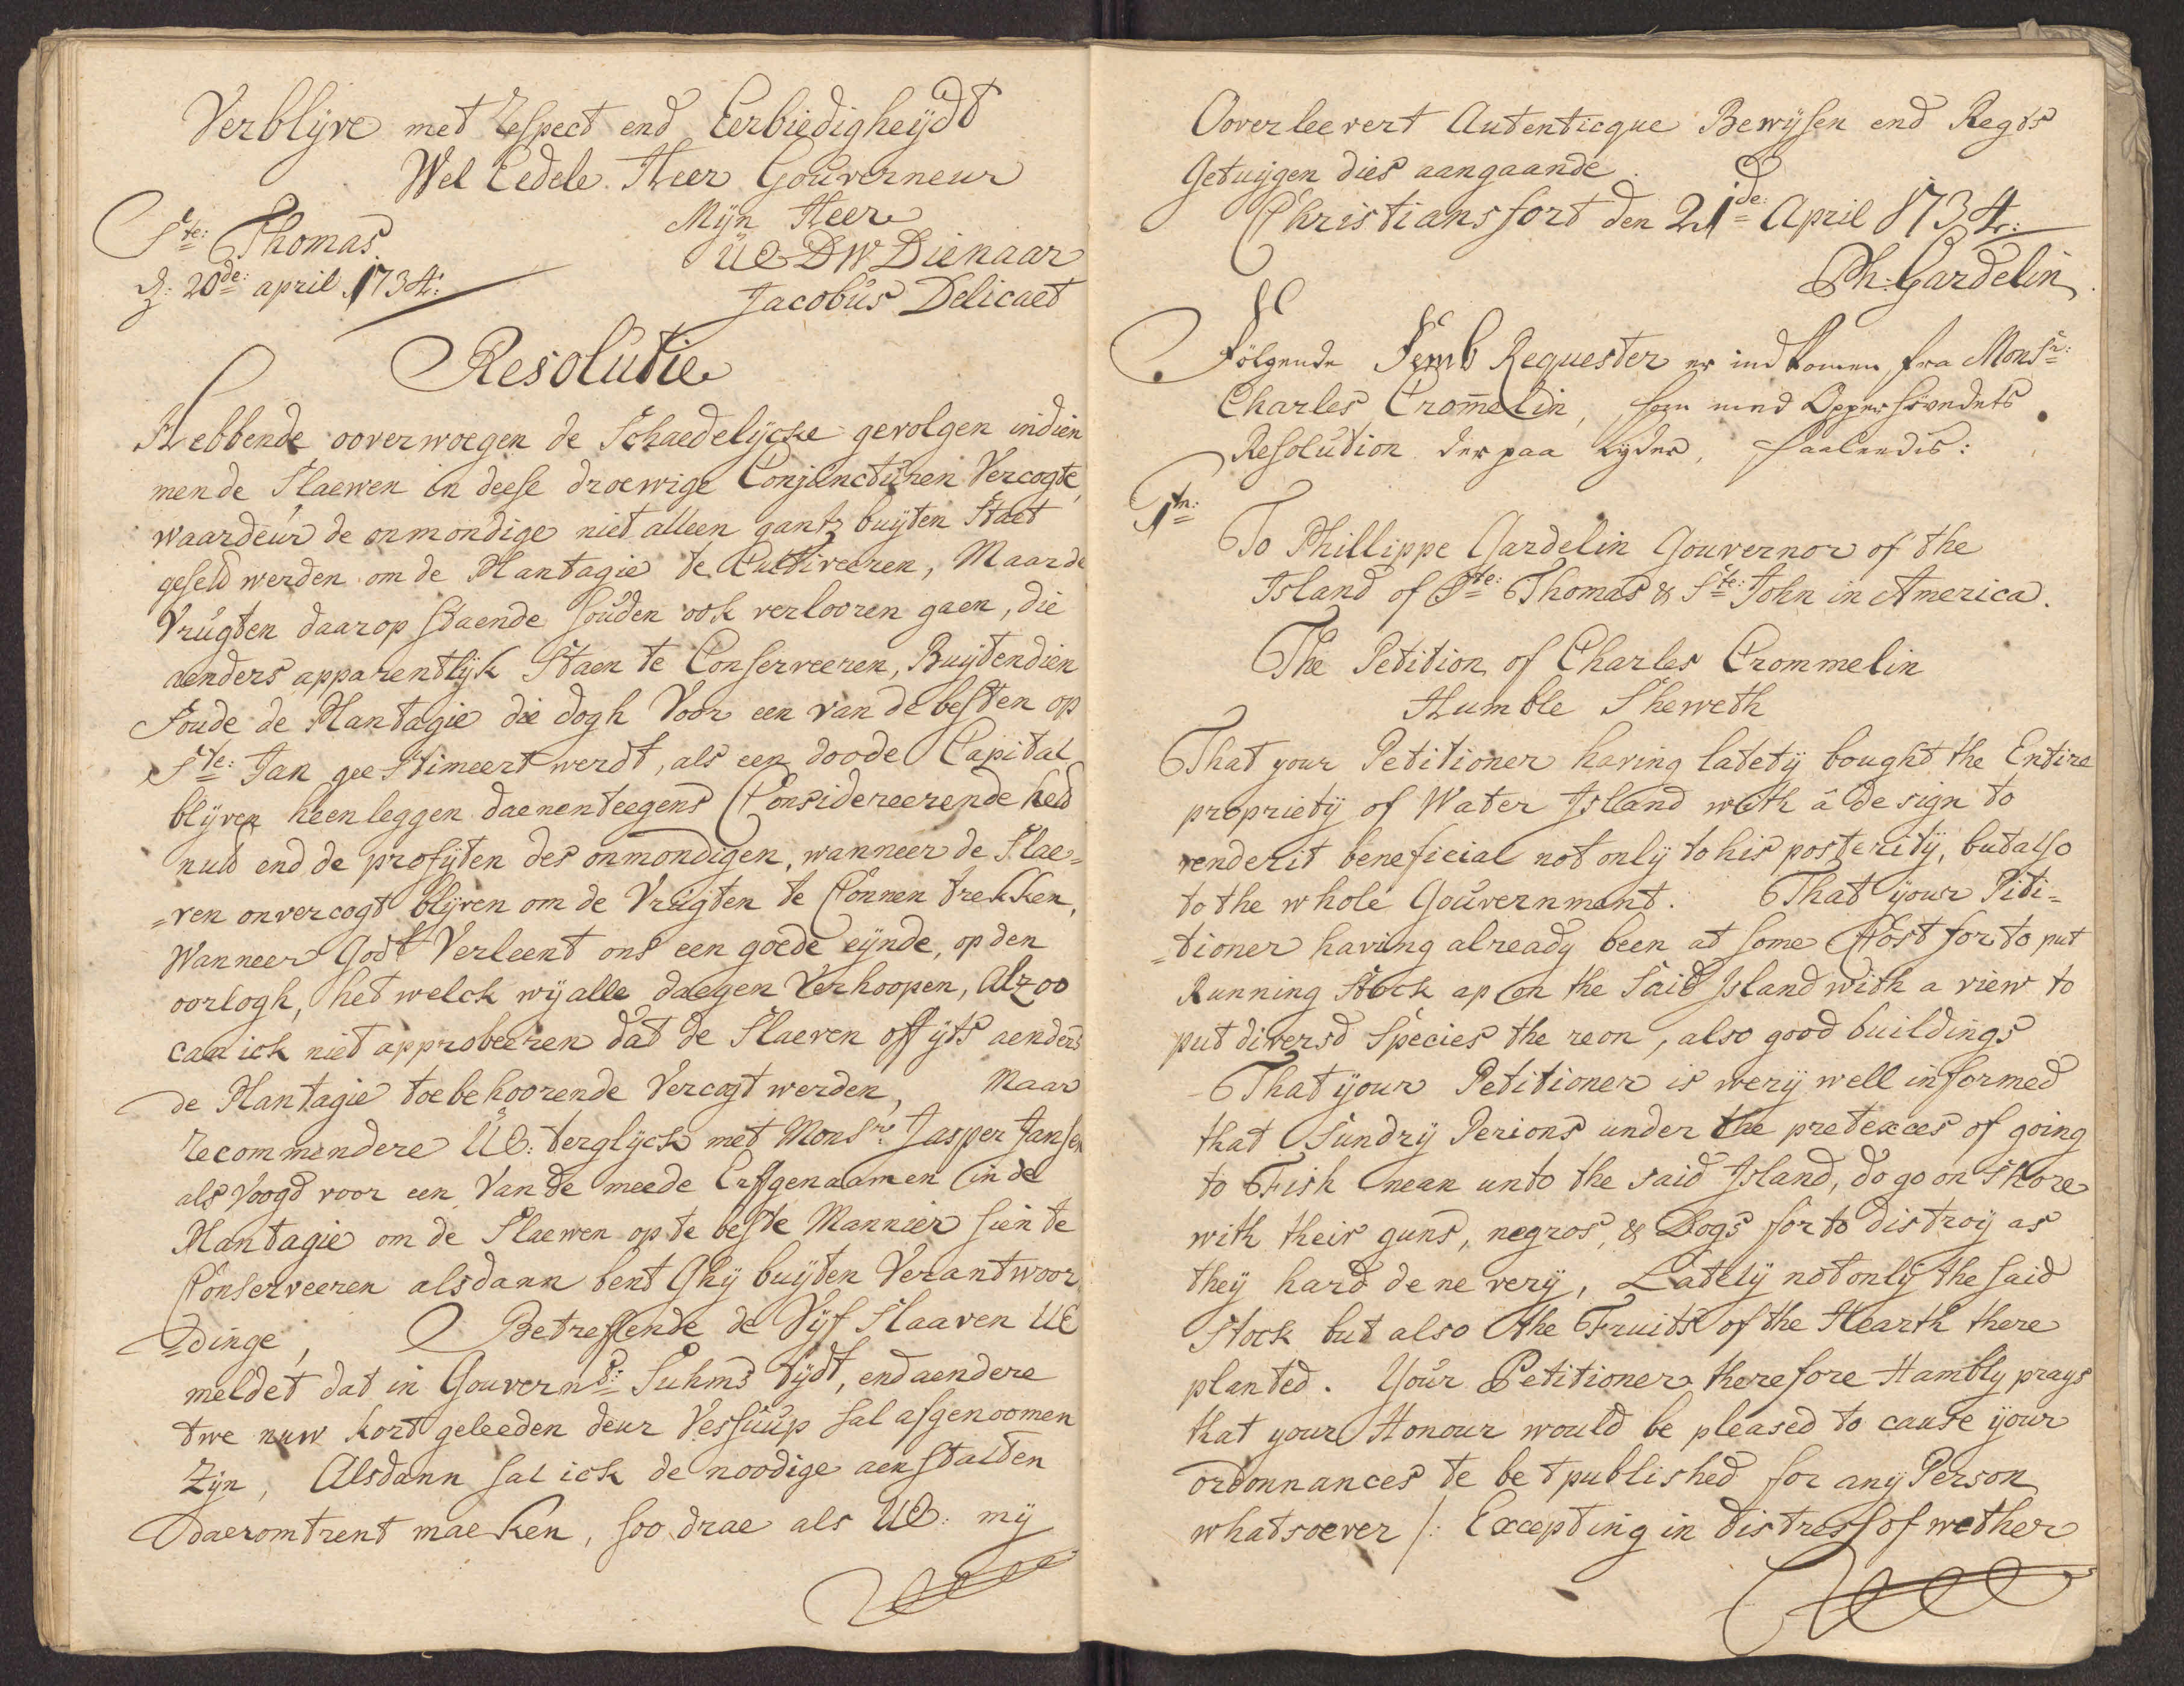 Verblyve met Respect end Eerbiedigheijdt
Wel Eedele Heer Gouverneur
Mijn Heer
Ste: Thomas.
UE DW Dienaar
d: 20de: april 1734:
Jacobus Delicaet
Resolutie
Hebbende ooverwoegen de Schaedelijcke gevolgen indien
men de Slaewen in deese droewige Conjuncturen Vercogte,
waardeur de onmondige niet alleen gantz buijten Staet
geseld werden om de Plantagie te Cultiveeren, Maar de
Vrugten daarop staende souden ook verlooren gaen, die
aenders apparentlijk Staen te Conserveeren, Buijtendien
Soude de Plantagie die dogh Voor een van de besten op
Ste: Jan geestimeert werdt, als een doode Capital
blijven heen leggen daenenteegens Considereerende het
nutt end de profijten des onmondigen, wanneer de Slae=
=ven onvercogt blijven om de Vrugten te Connen trekken,
Wanneer Godt Verleent ons een goede eijnde, op den
oorlogh, het welck wij alle daegen Verhoopen, Alzoo
can ick niet approbeeren dat de Slaeven off ijts aenders
de Plantagie toebehoorende Vercogt werden, Maar
recommendere UE: terglijck met Monsr: Jasper Jansen
als Voogd voor een Van de meede Erffgenaamen in de
Plantagie om de Slaewen op te beste Mannier sien te
Conserveeren alsdann bent Ghij buijten Verantwoor
=dinge, Betreffende de Vijf Slaaven UE
meldet dat in Gouvernd: Suhms tijdt, end aendere
twe nuw kort geleeden deur Vessuup sal afgenoomen
Zijn, Alsdann sal ick de noodige aenstalten
daeromtrent maeken, soo drae als UE: mij
Ooverleevert Autenticque Bewijsen end Regts
Getuijgen dies aangaande.
Christiansfort den 21de: April 1734:
Ph: Gardelin
Fölgende Femb Requester er indkomen fra Monsr:
Charles Crom̄elin, som med Opperhövedets
Resolution derpaa lyder, saaleedis:
1te:
To Phillippe Gardelin Gouvernor of the
Island of Ste: Thomas & Ste: John in America.
The Petition of Charles Crommelin
Humble Sheweth
That your Petitioner having latety bought the Entire
propriety of Water Island with â design to
renderit beneficial not only to his posterity, but also
to the whole Gouvernment. That your Piti=
=tioner having already been at some Cost for to put
Running Stock ap on the Said Island with a view to
put diversd Species the reon, also good buildings
That your Petitioner is wery well informed
that Sundry Perions under the pretexces of going
to Fish near unto the said Island, do go on Shore
with their guns, negros, & Dogs for to distroy as
they hard de ne very, Lately not only the said
Stock but also the Fruits of the Hearth there
planted. Your Petitioner therefore Hambly prays
that your Honour would be pleased to cause your
ordonnances te be t published for any Person
whatsoever /: Excepting in distress of wether